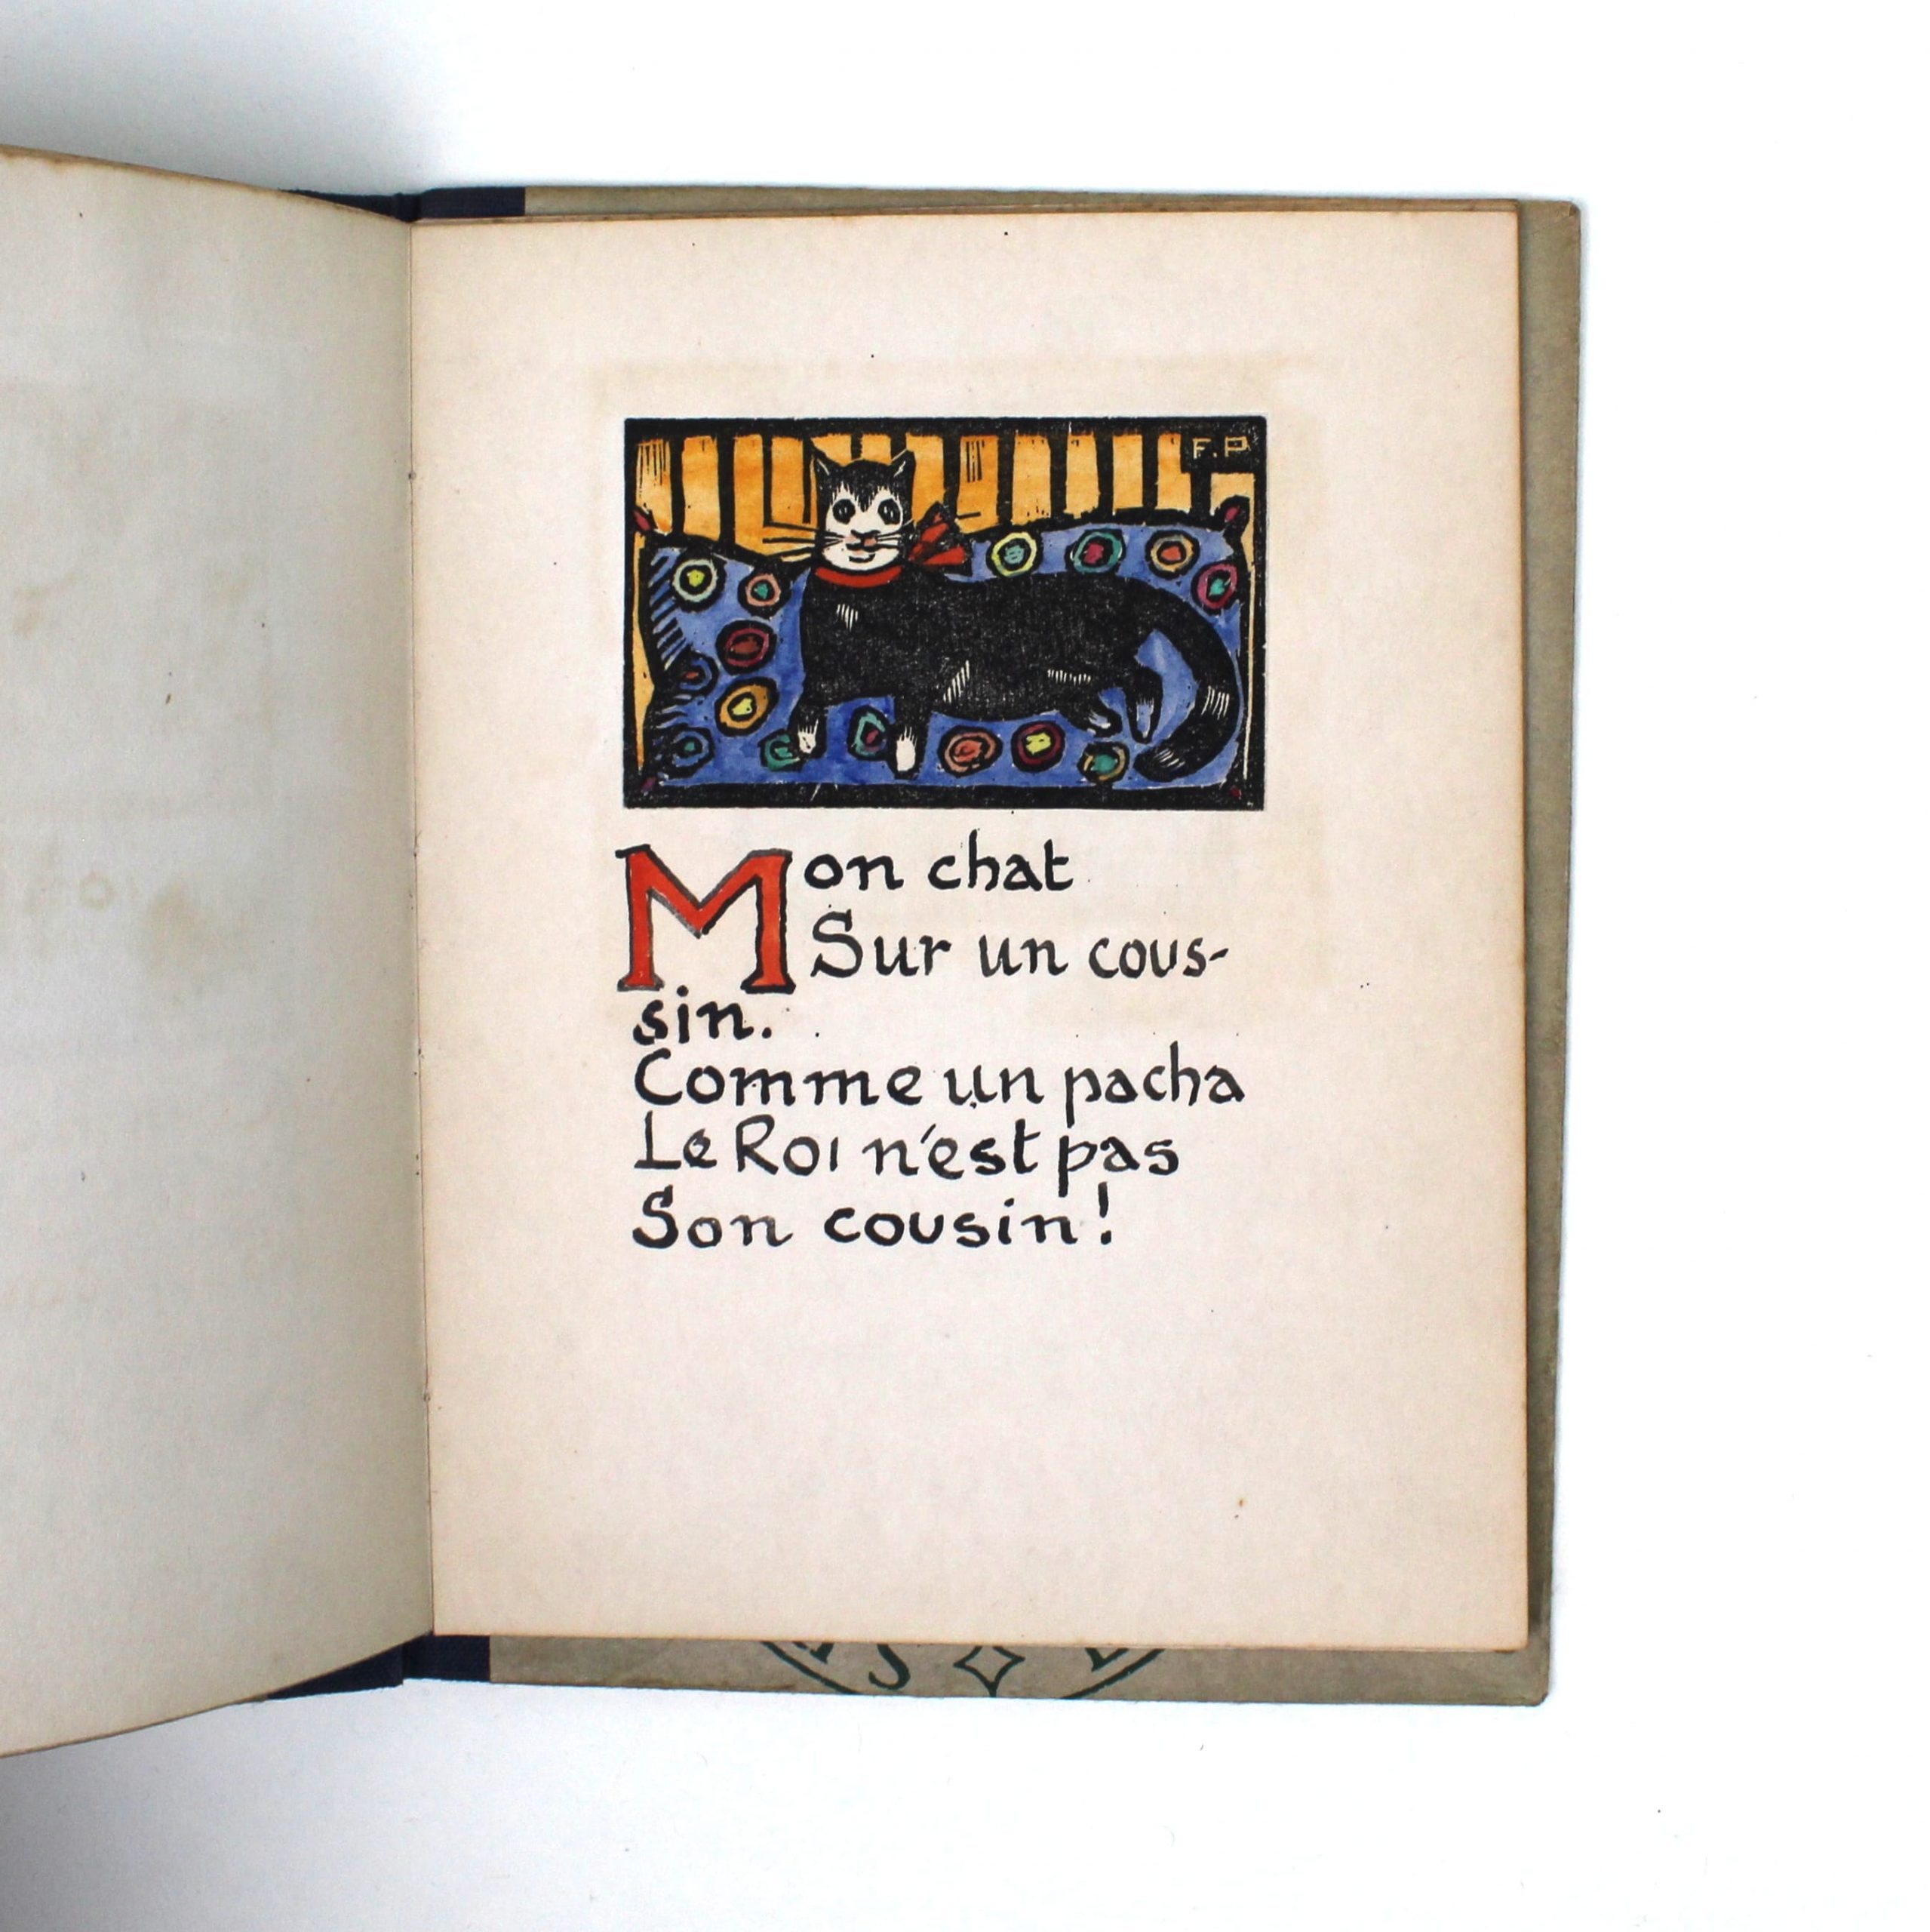 F.P
Mon chat
Sur un cous-
sin.
Comme un pacha
Le Roi n'est pas
Son cousin!